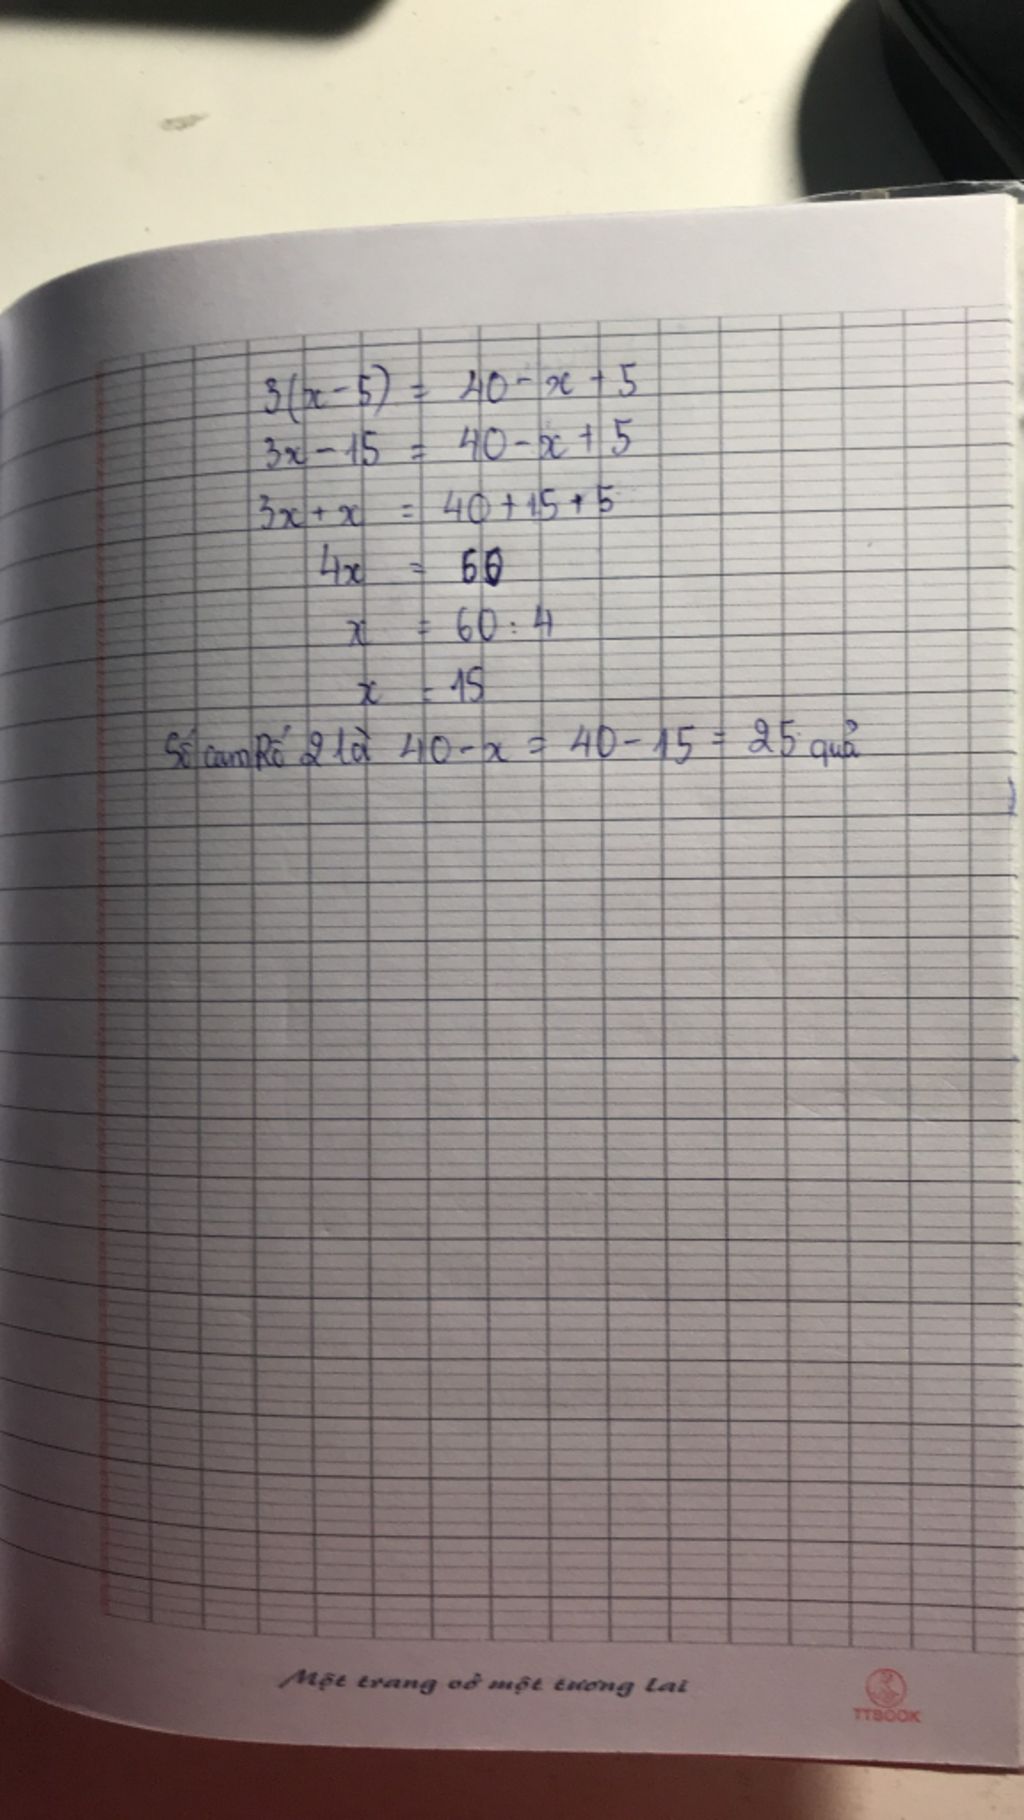 3(x-5) = 40-x+5
3x-15 = 40-x+5
3x+x = 40+15+5
4x = 60
x = 60:4
x = 15
Số cam Rổ 2 là 40-x = 40-15 = 25 quả
Một trang vở một tương lai
TTBOOK